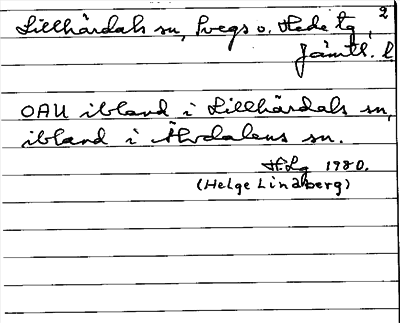 2
Lillhärdals sn, Svegs o. Hede tg,
Jämtl. l.
OAU ibland i Lillhärdals sn,
ibland i Älvdalens sn.
H.Lg 1980.
(Helge Lindberg)